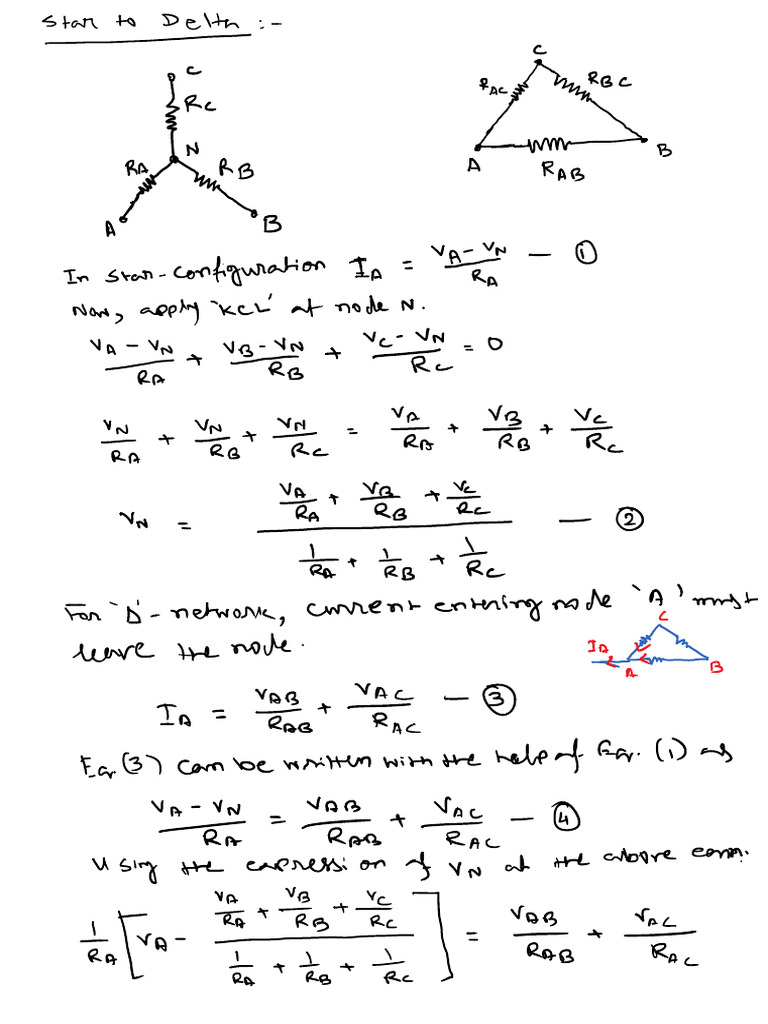 Star to Delta :-
C
RC
N
RA
RB
A
B
C
RAC
RBC
A
B
RAB
In star-configuration IA = (VA - VN)/RA — ①
Now, apply 'KCL' at node N.
(VA - VN)/RA + (VB - VN)/RB + (VC - VN)/RC = 0
VN/RA + VN/RB + VN/RC = VA/RA + VB/RB + VC/RC
VN = (VA/RA + VB/RB + VC/RC)/(1/RA + 1/RB + 1/RC) — ②
For 'Δ'-network, current entering node 'A' must
leave the node.
C
IA
A
B
IA = VAB/RAB + VAC/RAC — ③
Eq. (3) can be written with the help of Eq. (1) as
(VA - VN)/RA = VAB/RAB + VAC/RAC — ④
Using the expression of VN at the above eqn.
1/RA [VA - (VA/RA + VB/RB + VC/RC)/(1/RA + 1/RB + 1/RC)] = VAB/RAB + VAC/RAC